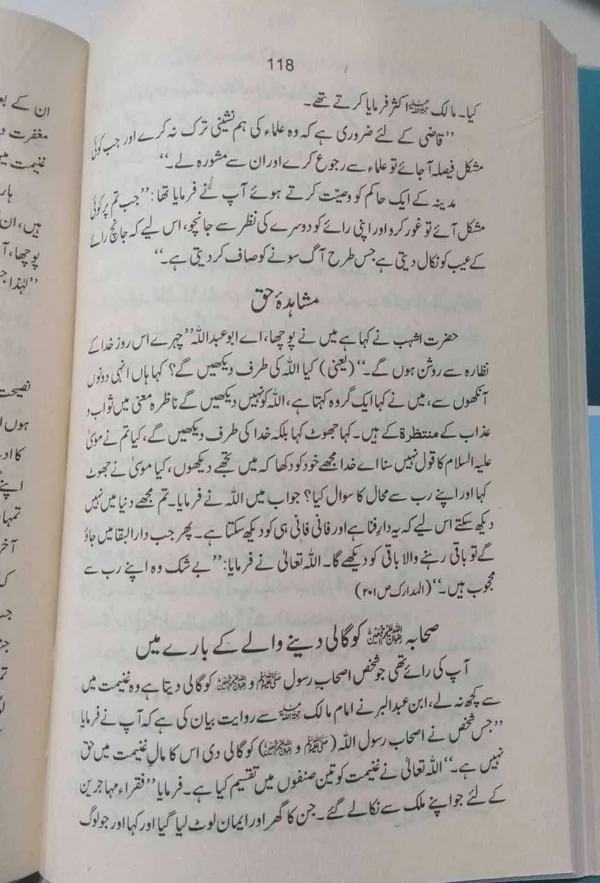 118
کیا۔ مالک رحمۃ اللہ علیہ اکثر فرمایا کرتے تھے۔
”قاضی کے لئے ضروری ہے کہ وہ علماء کی ہم نشینی ترک نہ کرے اور جب کوئی
مشکل فیصلہ آ جائے تو علماء سے رجوع کرے اور ان سے مشورہ لے۔“
مدینہ کے ایک حاکم کو وصیّت کرتے ہوئے آپ نے فرمایا تھا: ”جب تم پر کوئی
مشکل آئے تو غور کرو اور اپنی رائے کو دوسرے کی نظر سے جانچو، اس لیے کہ جانچ رائے
کے عیب کو نکال دیتی ہے جس طرح آگ سونے کو صاف کر دیتی ہے۔“
مشاہدۂ حق
حضرت اشہب نے کہا ہے میں نے پوچھا، اے ابو عبداللہ ”چہرے اس روز خدا کے
نظارہ سے روشن ہوں گے۔“ (یعنی) کیا اللہ کی طرف دیکھیں گے؟ کہا ہاں انہی دونوں
آنکھوں سے، میں نے کہا ایک گروہ کہتا ہے، اللہ کو نہیں دیکھیں گے ناظرہ معنی میں ثواب و
عذاب کے منتظرۃ کے ہیں۔ کہا جھوٹ کہا بلکہ خدا کی طرف دیکھیں گے، کیا تم نے موسیٰ
علیہ السلام کا قول نہیں سنا اے خدا مجھے خود کو دکھا کہ میں تجھے دیکھوں، کیا موسیٰ نے جھوٹ
کہا اور اپنے رب سے محال کا سوال کیا؟ جواب میں اللہ نے فرمایا۔ تم مجھے دنیا میں نہیں
دیکھ سکتے اس لیے کہ یہ دارِ فنا ہے اور فانی فانی ہی کو دیکھ سکتا ہے۔ پھر جب دارالبقا میں جاؤ
گے تو باقی رہنے والا باقی کو دیکھے گا۔ اللہ تعالیٰ نے فرمایا: ”بے شک وہ اپنے رب سے
محجوب ہیں۔“ (المدارک ص ۲۰۱)
صحابہ رضوان اللہ علیہم اجمعین کو گالی دینے والے کے بارے میں
آپ کی رائے تھی جو شخص اصحاب رسول صلی اللہ علیہ وسلم و رضوان اللہ علیہم اجمعین کو گالی دیتا ہے وہ غنیمت میں
سے کچھ نہ لے، ابن عبدالبر نے امام مالک رحمۃ اللہ علیہ سے روایت بیان کی ہے کہ آپ نے فرمایا
”جس شخص نے اصحاب رسول اللہ (صلی اللہ علیہ وسلم و رضوان اللہ علیہم اجمعین) کو گالی دی اس کا مالِ غنیمت میں حق
نہیں ہے۔“ اللہ تعالیٰ نے غنیمت کو تین صنفوں میں تقسیم کیا ہے۔ فرمایا ”فقراء مہاجرین
کے لئے جو اپنے ملک سے نکالے گئے۔ جن کا گھر اور ایمان لوٹ لیا گیا اور کہا اور جو لوگ